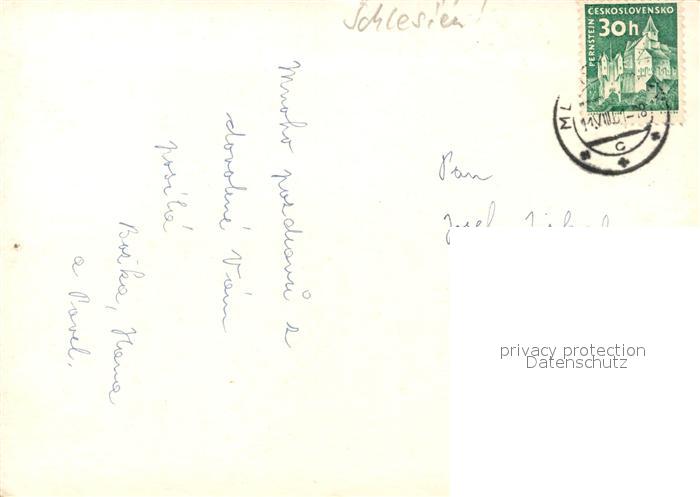 Schlesien!
PERNŠTEJN
ČESKOSLOVENSKO
30h
ML
11.VIII.61-18
C
Mnoho pozdravů z
dovolené Vám
posílá
Boška, Hana
a Pavel.
Pan
Josef
privacy protection
Datenschutz